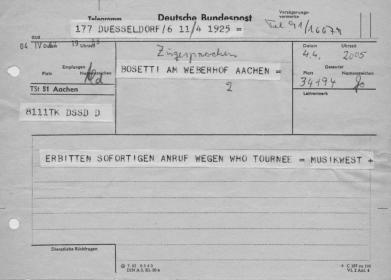 Telegramm Deutsche Bundespost
177 DUESSELDORF/6 11/4 1925 =
Verzögerungsvermerke
Tel 91/16079
aus
Datum Uhrzeit
Zugesprochen
Datum Uhrzeit
4.4. 2005
Empfangen
Platz Namenszeichen
BOSETTI AM WEBERHOF AACHEN =
2
Gesendet
Platz Namenszeichen
34194
TSt 51 Aachen
Leitvermerk
8111TK DSSD D
ERBITTEN SOFORTIGEN ANRUF WEGEN WHO TOURNEE = MUSIKWEST +
Dienstliche Rückfragen